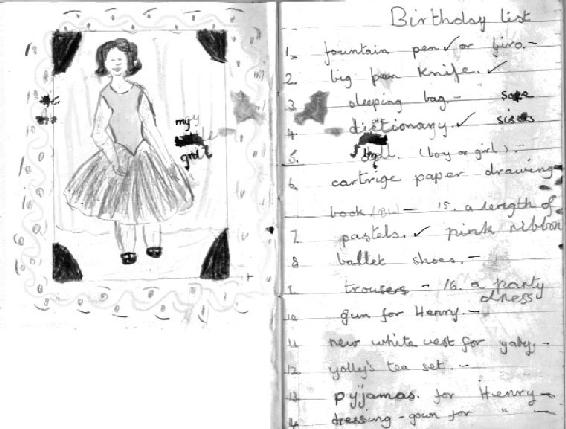 my
girl
Birthday list
1. fountain pen ✓ or biro. -
2. big pen knife. ✓
3. sleeping bag. -
4. dictionary. ✓
5. (boy or girl). -
6. cartrige paper drawing
book - 15. a length of
7. pastels. ✓ pink ribbon
8. ballet shoes. -
9. trousers - 16. a party
dress
10. gun for Henry. -
11. new white vest for yolly. -
12. yolly's tea set. -
13. pyjamas. for Henry -
14. dressing-gown for " -